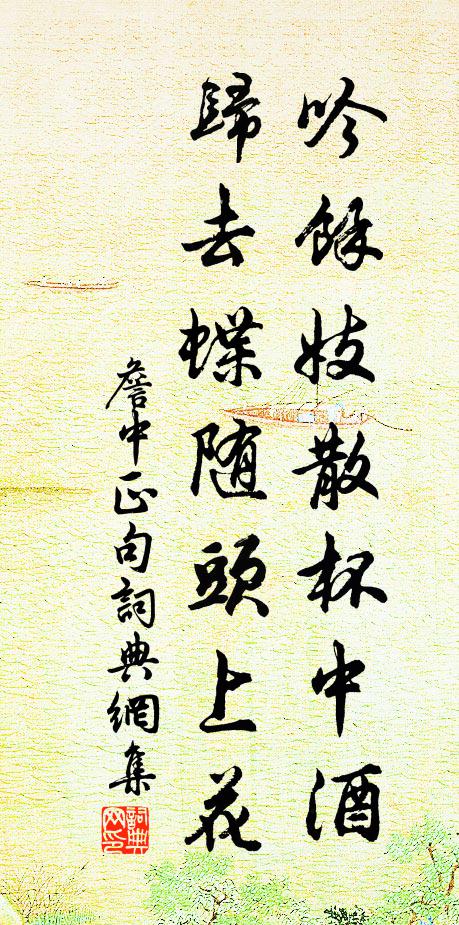 吟餘妓散杯中酒
歸去蝶随頭上花
詹中正句詞典網集
詞典网印